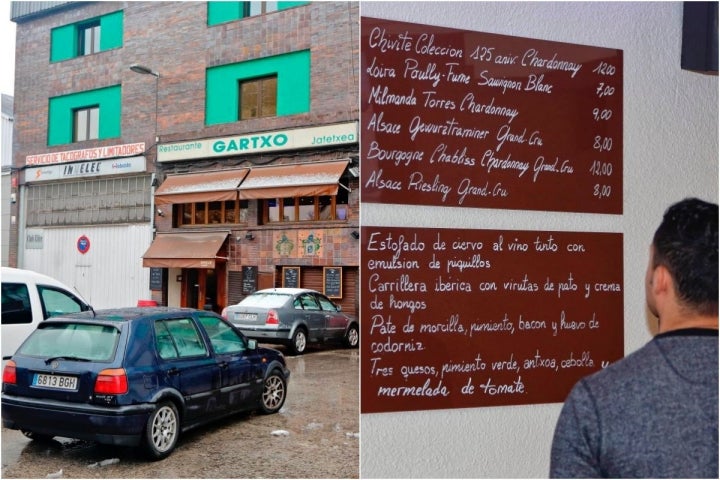 SERVICIO DE TACÓGRAFOS Y LIMITADORES
Restaurante GARTXO Jatetxea
6813 BGH
Chivite Coleccion 125 aniv. Chardonnay 12,00
Loira Pouilly-Fume Sauvignon Blanc 7,00
Milmanda Torres Chardonnay 9,00
Alsace Gewurztraminer Grand-Cru 8,00
Bourgogne Chabliss Chardonnay Grand-Cru 12,00
Alsace Riesling Grand-Cru 8,00
Estofado de ciervo al vino tinto con
emulsion de piquillos
Carrillera iberica con virutas de pato y crema
de hongos
Pate de morcilla, pimiento, bacon y huevo de
codorniz.
Tres quesos, pimiento verde, antxoa, cebolla
mermelada de tomate